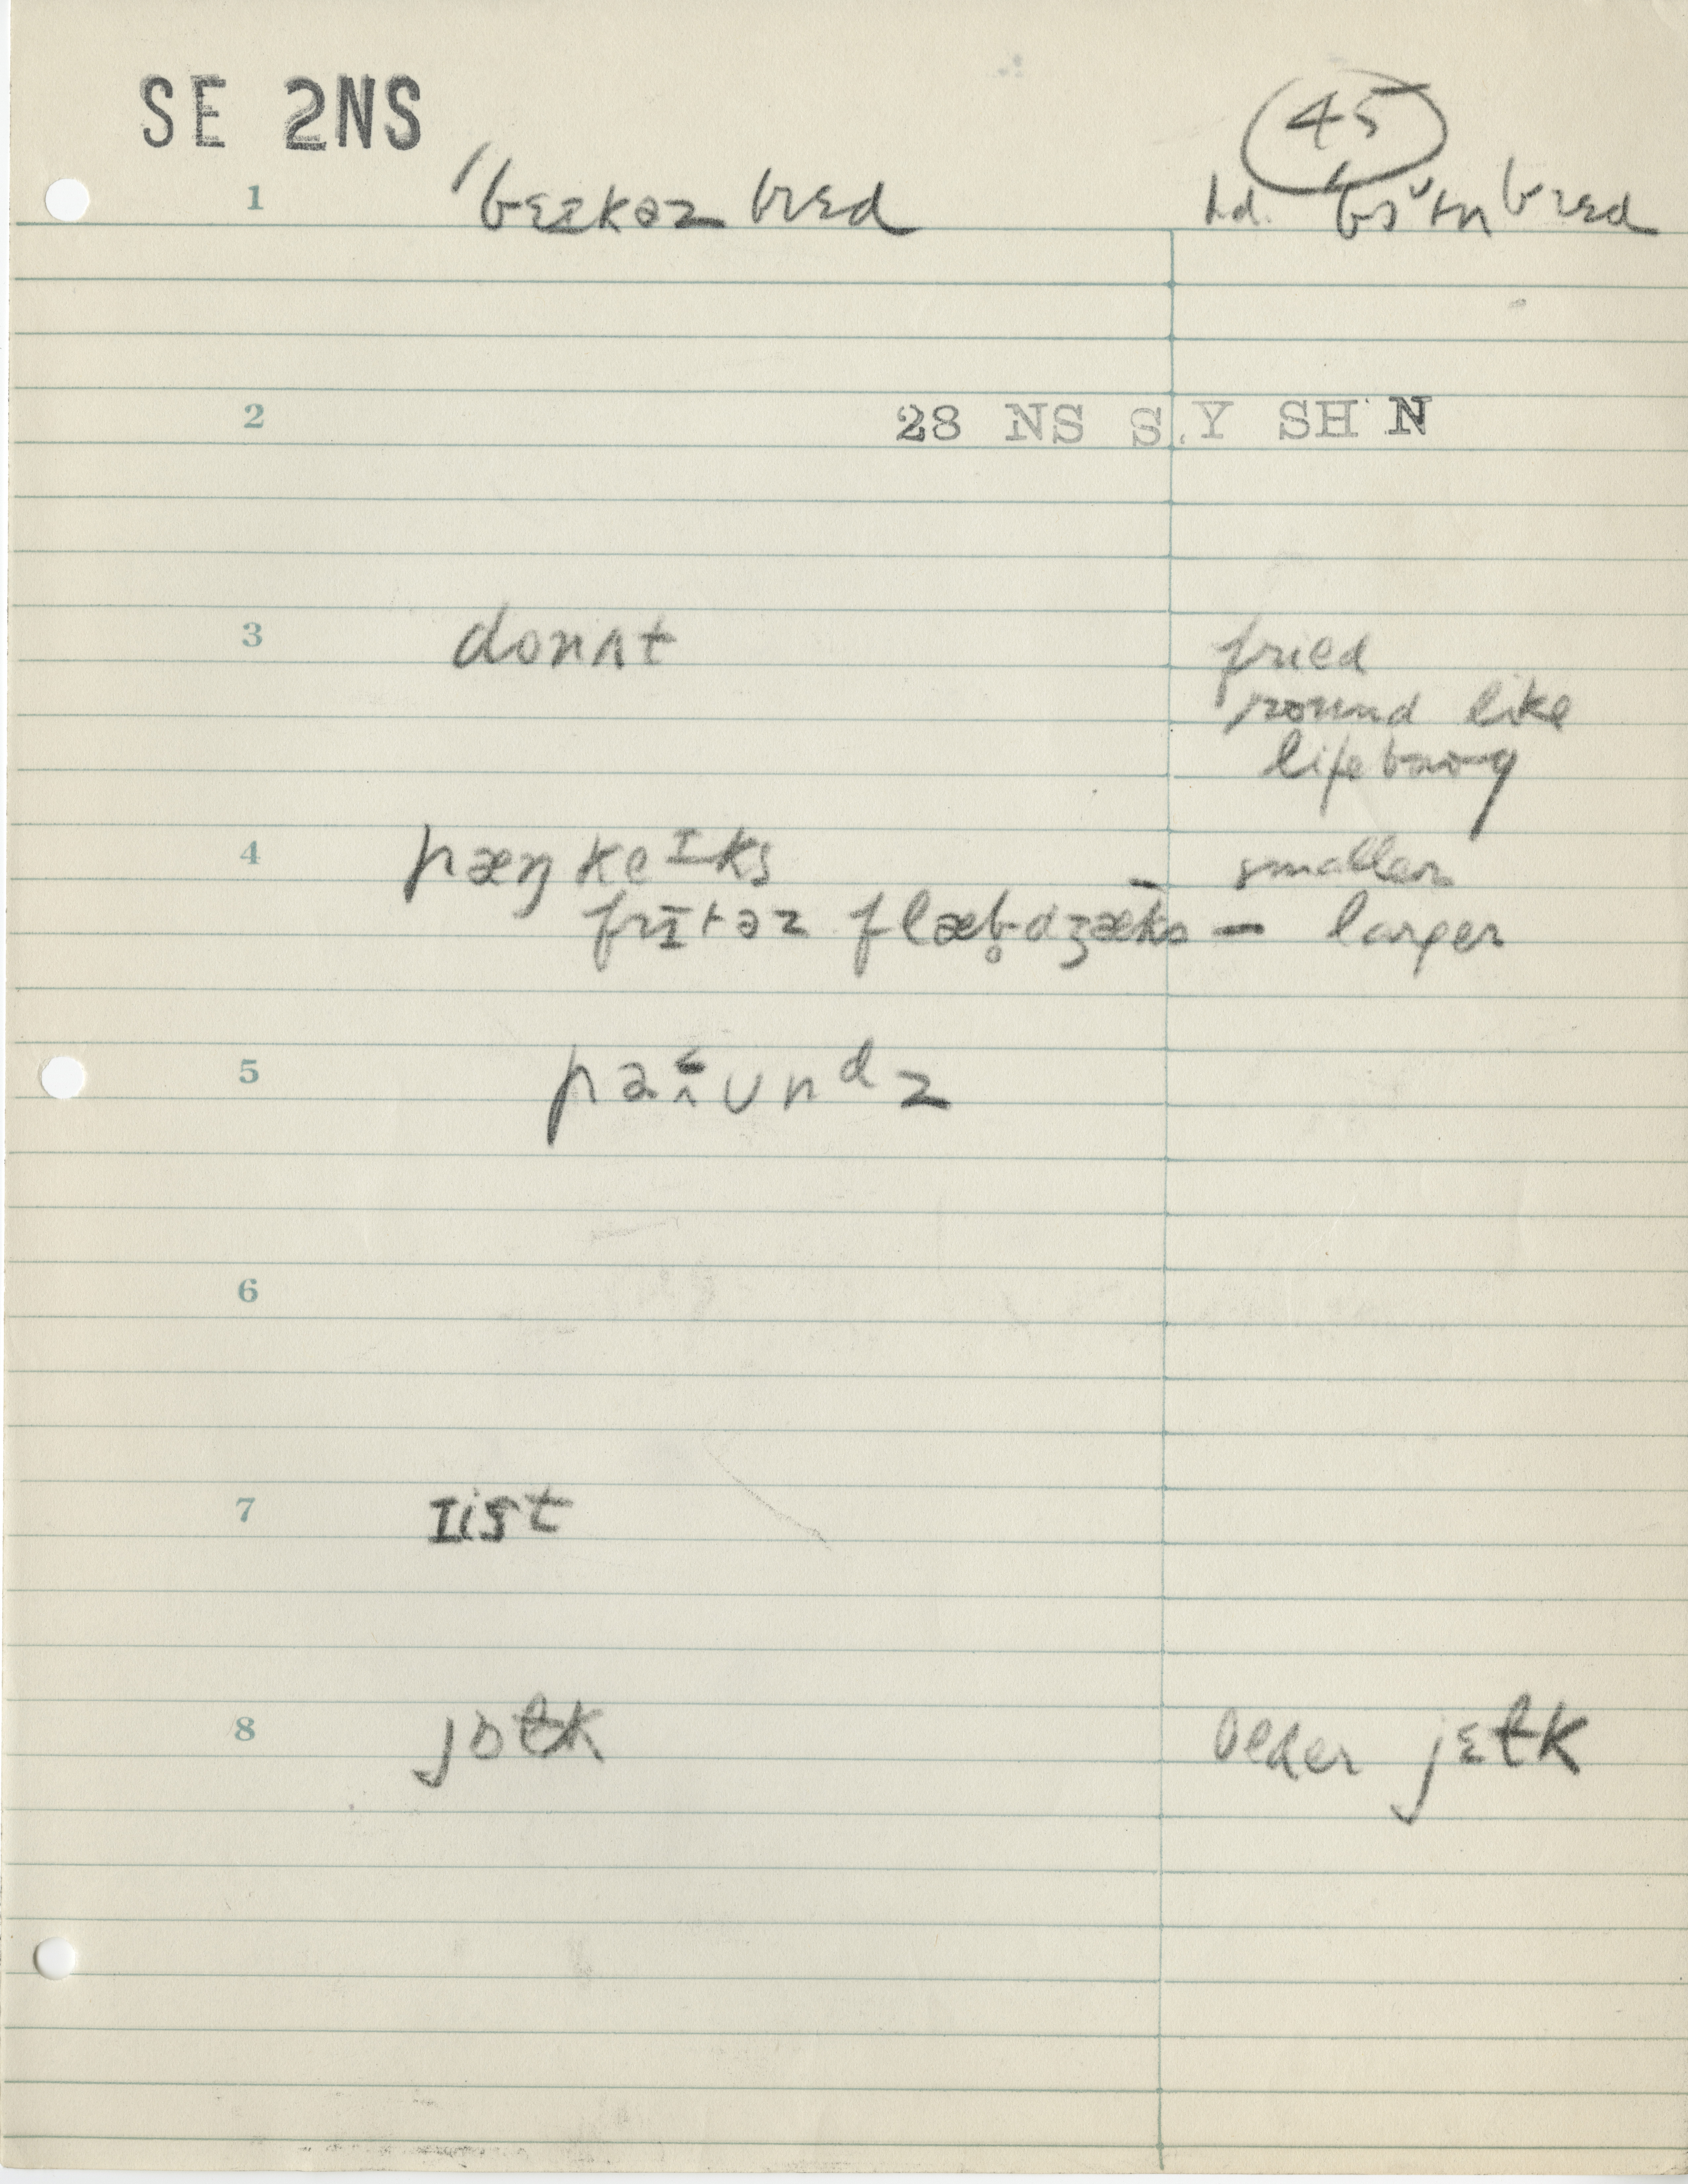 SE 2NS
45
1 ˈbɛɪkəz brɛd hd.
2 28 NS S.Y SH N
3 donʌt fried
round like
lifebuoy
4 pæŋkeɪks smaller
frɪtəz flæb̥dʒæks — larger
5 paʌundz
6
7 ɪist
8 jɒɫk older jɛɫk